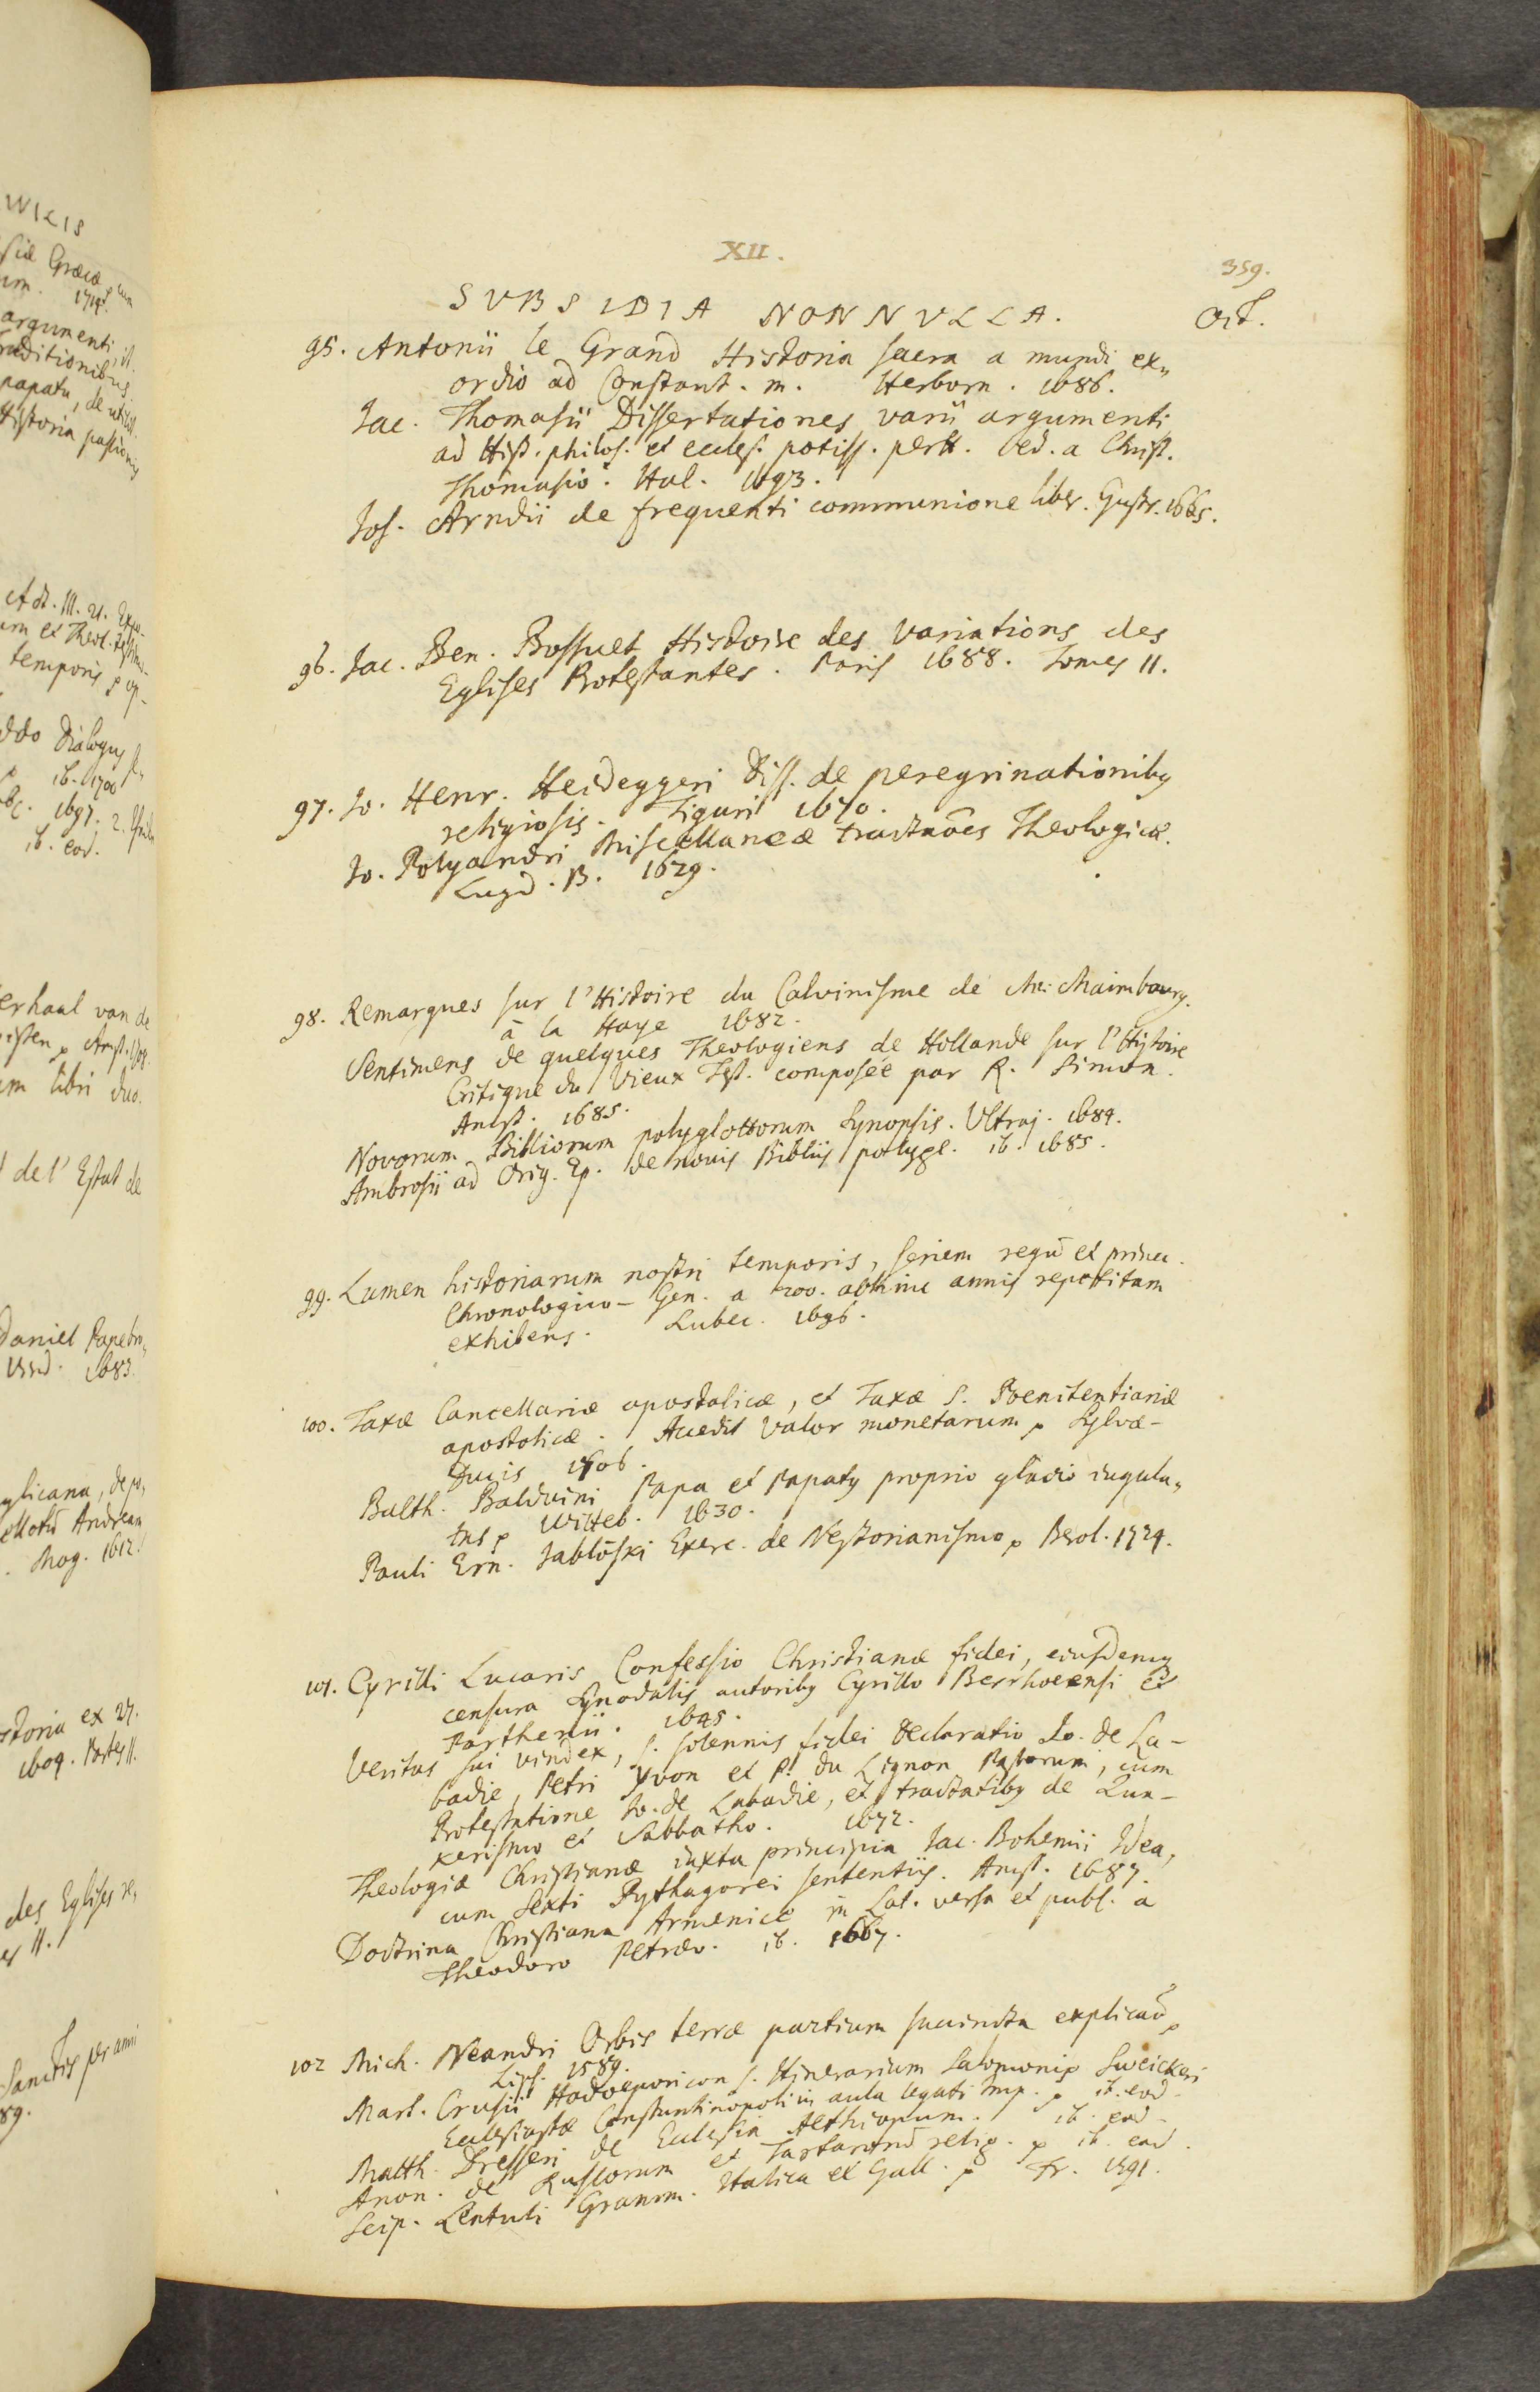 XII.
359.
SVBSIDIA NONNVLLA. Oct.
95. Antonii le Grand Historia sacra a mundi ex„
ordio ad Constant. m. Herborn. 1686.
Jac. Thomasii Dissertationes varii argumenti
ad Hist. philos. et eccles. potiss. pertt. ed. a Christ.
Thomasio. Hal. 1693.
Jos. Arndii de frequenti communione liber. Gustr. 1665.
96. Jac. Ben. Bossuet Histoire des Variations des
Eglises Protestantes. Paris 1688. Tomes II.
97. Jo. Henr. Heideggeri Diss. de peregrinationibꝰ
religiosis. Tiguri 1670.
Jo. Polyandri Miscellaneæ tractaões Theologicæ.
Lugd. B. 1629.
98. Remarques sur l'Histoire du Calvinisme de Mr. Maimbourg.
à la Haye 1682.
Sentimens de quelques Theologiens de Hollande sur l'Histoire
Critique du Vieux Test. composée par R. Simon.
Amst. 1685.
Novorum Bibliorum polyglottorum Synopsis. Vltraj. 1684.
Ambrosii ad Orig. Ep. de novis Bibliis polygl. ib. 1685.
99. Lumen historiarum nostri temporis, seriem regũ et princ.
Chronologico-Gen. a 200. abhinc annis repetitam
exhibens. Lubec. 1696.
100. Taxæ Cancellariæ apostolicæ, et Taxæ S. Poenitentiariæ
apostolicæ. Accedit valor monetarum p Sylvæ-
Ducis 1706.
Balth. Balduini Papa et Papatꝰ proprio gladio iugula„
tus p Witteb. 1630.
Pauli Ern. Jablõski Exerc. de Nestorianismo p Berol. 1724.
101. Cyrilli Lucaris Confessio Christianæ fidei, eiusdemqꝫ
censura synodalis autoribꝰ Cyrillo Berrhoeensi et
Parthenii. 1645.
Veritas sui vindex, s. solennis fidei declaratio Jo. de La-
badie, Petri Yvon et P. du Lignon Pastorum, cum
Protestatione Jo. de Labadie, et tractatibꝰ de Qua-
kerismo et Sabbatho. 1672.
Theologiæ Christianæ iuxta principia Jac. Bohemii Idea,
cum Sexti Pythagorei sententiis. Amst. 1687.
Doctrina Christiana Armenice in Lat. versa et publ. a
Theodoro Petræo. ib. 1667.
102 Mich. Neandri Orbis terræ partium succincta explicaõ p
Lips. 1589.
Mart. Crusii Hodoeporicon s. Itinerarium Salomonis Sweickeri
Ecclesiastæ Constantinopoli in aula legati Imp. p ib. eod.
Matth. Dresseri de Ecclesia Aethiopum. ib. eod.
Anon. de Russorum et Tartarorũ relig. p ib. eod.
Scip. Lentuli Gramm. Italica et Gall. p Fr. 1591.